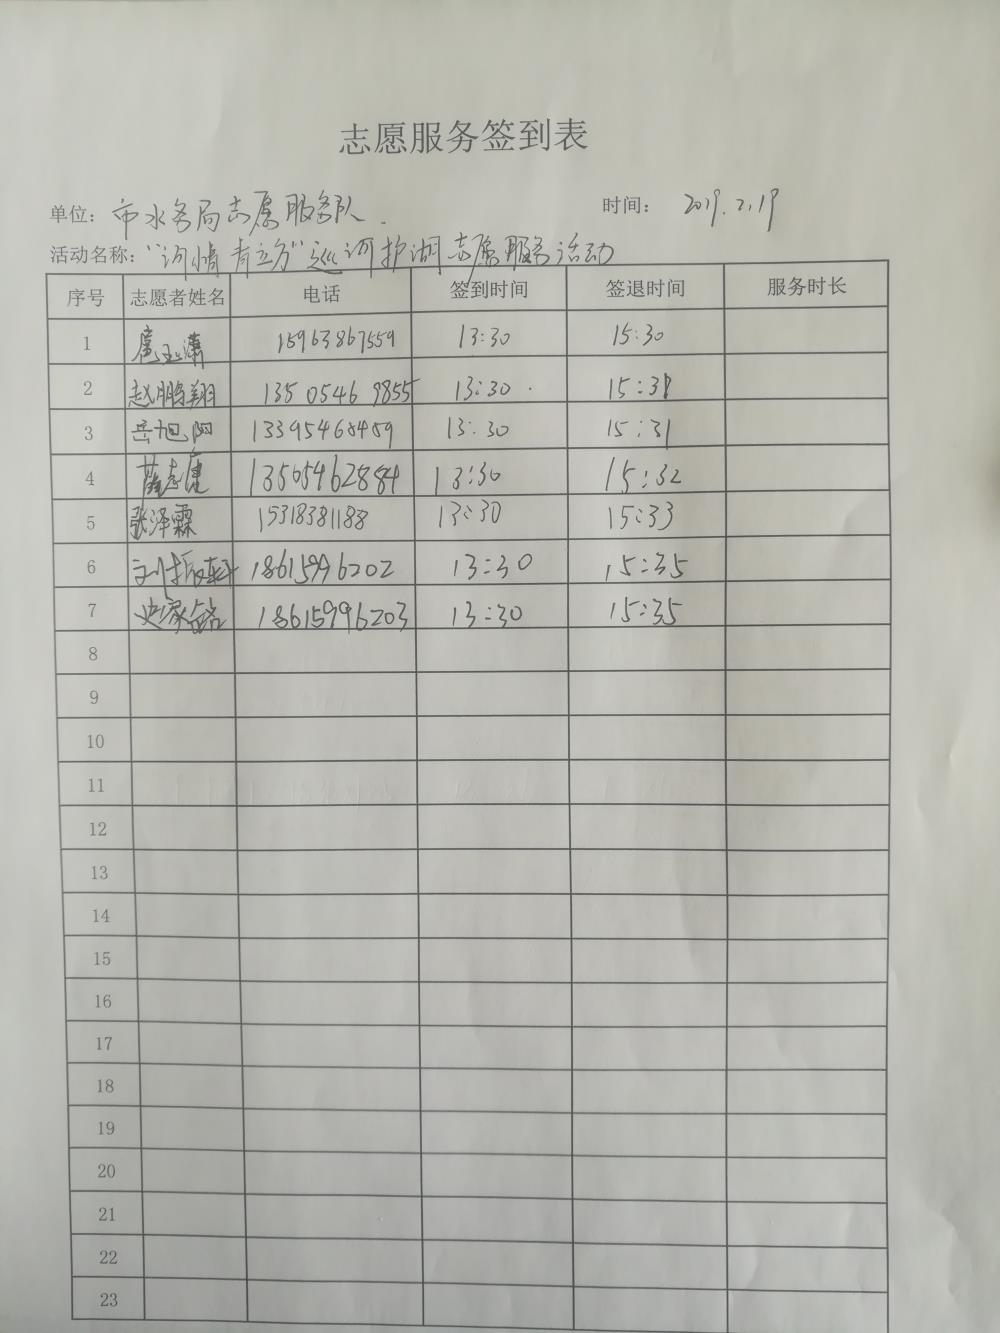 志愿服务签到表
单位: 市水务局志愿服务队.
时间: 2019.2.19
活动名称: "河情青立方"巡河护湖志愿服务活动
序号 志愿者姓名 电话 签到时间 签退时间 服务时长
1 扈玉潇 15963867559 13:30 15:30
2 赵鹏翔 13505469855 13:30 15:31
3 岳旭阳 13395468489 13:30 15:31
4 志康 13505462884 13:30 15:32
5 张泽霖 15318381188 13:30 15:33
6 刘振轩 18615996202 13:30 15:35
7 史家铭 18615996203 13:30 15:35
8
9
10
11
12
13
14
15
16
17
18
19
20
21
22
23